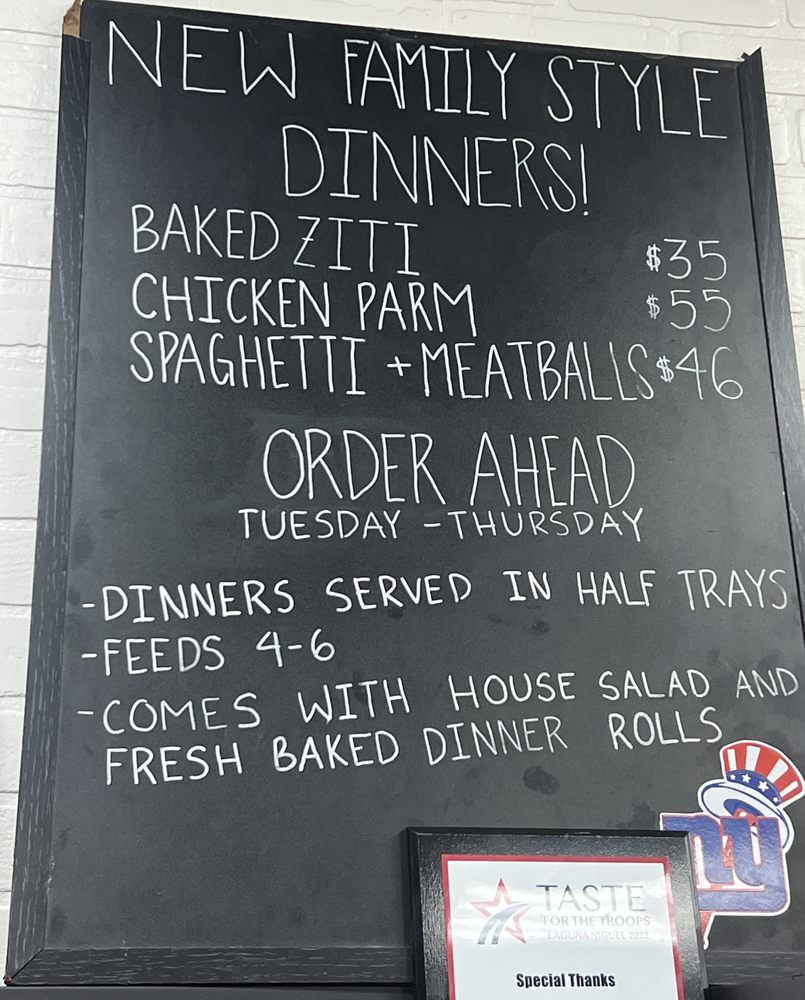 NEW FAMILY STYLE
DINNERS!
BAKED ZITI $35
CHICKEN PARM $55
SPAGHETTI + MEATBALLS $46
ORDER AHEAD
TUESDAY - THURSDAY
- DINNERS SERVED IN HALF TRAYS
- FEEDS 4-6
- COMES WITH HOUSE SALAD AND
FRESH BAKED DINNER ROLLS
ny
TASTE
FOR THE TROOPS
LAGUNA NIGUEL 2022
Special Thanks